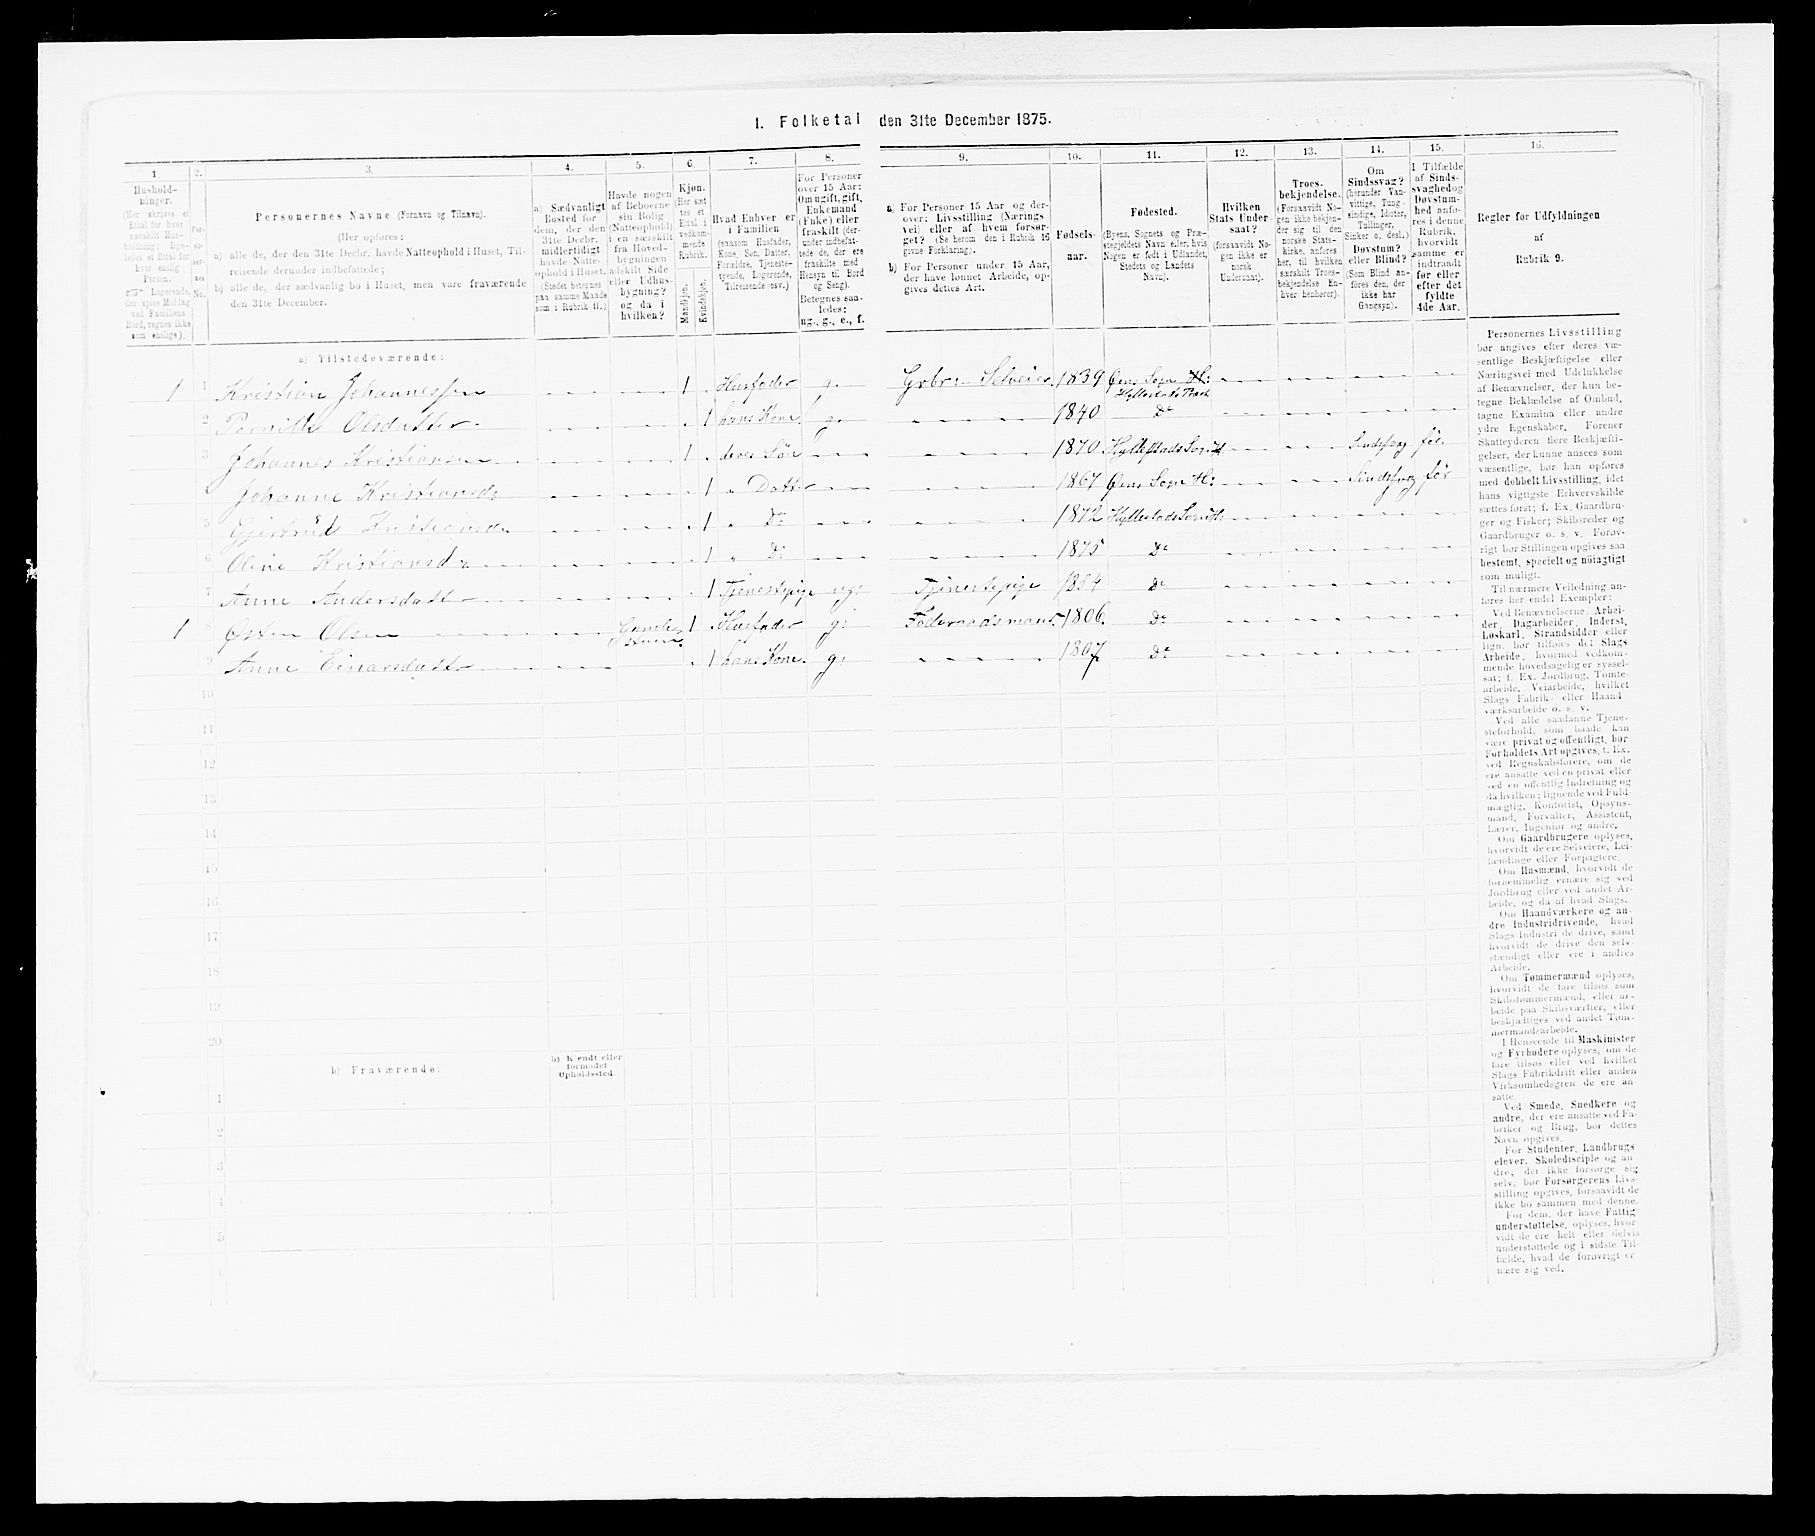 1. Folketal den 31te December 1875.
1
Hushold-
ninger.
(Her skrives et
Ettal for hver
særskilt Hus-
holdning; lige-
ledes et Ettal for
hver enslig
Person.
Logerende,
der spise Middag
ved Familiens
Bord, regnes ikke
som enslige).
2.
Per-
so-
ner-
nes
No.
3.
Personernes Navne (Fornavn og Tilnavn).
(Her opføres:
a) alle de, der den 31te Decbr. havde Natteophold i Huset, Til-
reisende derunder indbefattede;
b) alle de, der sædvanlig bo i Huset, men vare fraværende
den 31te December.
4.
a) Sædvanligt
Bosted for
dem, der den
31te Decbr.
midlertidigt
havde Natte-
ophold i Huset.
(Stedet betegnes
paa samme Maade
som i Rubrik 11.)
5.
Havde nogen
af Beboerne
sin Bolig
(Natteophold)
i en særskilt
fra Hoved-
bygningen
adskilt Side
eller Udhus-
bygning?
og da i
hvilken?
6.
Kjøn.
(Her sæt
tes et
Ettal i
vedkom-
mende
Rubrik.
Mandkjøn.
Kvindekjøn.
7.
Hvad Enhver er
i Familien
(saasom Husfader,
Kone, Søn, Datter,
Forældre, Tjeneste-
tyende, Logerende,
Tilreisende osv.)
8.
For Personer
over 15 Aar:
Om ugift, gift,
Enkemand
(Enke) eller
fraskilt (der-
under indbefat-
tede de, der ere
fraskilte med
Hensyn til Bord
og Seng).
Betegnes saa-
ledes:
ug., g., e., f.
9.
a) For Personer 15 Aar og der-
over: Livsstilling (Nærings
vei) eller af hvem forsør-
get? (Se herom den i Rubrik 16
givne Forklaring).
b) For Personer under 15 Aar,
der have lønnet Arbeide, op-
gives dettes Art.
10.
Fødsels-
aar.
11.
Fødested.
(Byens, Sognets og Præ-
stegjeldets Navn eller, hvis
Nogen er født i Udlandet,
Stedets og Landets
Navn).
12.
Hvilken
Stats Under-
saat?
(forsaavidt No-
gen ikke er
norsk
Undersaat).
13.
Troes-
bekjendelse.
(Forsaavidt No-
gen ikke bekjen-
der sig til den
norske Stats-
kirke, anføres
her, til hvilken
særskilt Troes-
bekjendelse En-
hver henhører).
14.
Om
Sindssvag?
(herunder Van-
vittige, Tung-
sindige, Idioter,
Tullinger,
Sinker o. desl.)
Døvstum?
eller Blind?
(Som Blind an-
føres den, der
ikke har
Gangsyn).
15.
I Tilfælde
af Sinds-
svaghed og
Døvstum-
hed anfø-
res i denne
Rubrik,
hvorvidt
samme er
indtraadt
før eller
efter det
fyldte
4de Aar.
16.
Regler for Udfyldningen
af
Rubrik 9.
a) Tilstedeværende:
1 1 Kristian Johannessen 1 Husfader g. Grbr: Selveier 1839 Øens Sogn H:
Hyllestads Præst
2 Pernille Olsdatter 1 hans Kone g. 1840 Do
3 Johannes Kristiansen 1 deres Søn 1870 Hyllestads Sogn Sindssvag før.
Johanne Kristiansd 1 " Datter 1867 Øens Sogn H: Sindssvag før
5 Gjertrud Kristiansd 1 " Do 1872 Hyllestads Sogn
6 Oline Kristiansd 1 " Do 1875 Do
7 Anne Andersdatter 1 Tjenestepige ug: Tjenestepige 1854 Do
1 8 Østen Olsen Gamle-
stuen 1 Husfader g: Føderaadsmand 1806. Do
9 Anne Einarsdatter 1 hans Kone. g: 1807 Do
10
11
12
13
14
15
16
17
18
19
20
b) Fraværende:
b) Kjendt eller
formodet
Opholdssted.
1
2
3
4
5
Personernes Livsstilling
bør angives efter deres væ-
sentlige Beskjæftigelse eller
Næringsvei med Udelukkelse
af Benævnelser, der kun be-
tegne Beklædelse af Ombud,
tagne Examina eller andre
ydre Egenskaber. Forener
Skatteyderen flere Beskjæfti-
gelser, der kunne ansees som
væsentlige, bør han opføres
med dobbelt Livsstilling, idet
hans vigtigste Erhvervskilde
sættes først; f. Ex. Gaardbru-
ger og Fisker; Skibsreder og
Gaardbruger o. s. v. Forøv-
rigt bør Stillingen opgives saa
bestemt, specielt og nöiagtigt
som muligt.
Til nærmere Veiledning an-
føres her endel Exempler:
Ved Benævnelserne: Arbei-
der, Dagarbeider, Inderst,
Løskarl, Strandsidder eller
lign. bør tilføies det Slags
Arbeide, hvormed vedkom-
mende hovedsagelig er syssel-
sat; f. Ex. Jordbrug, Tomte-
arbeide, Veiarbeide, hvilket
Slags Fabrik- eller Haand
værksarbeide o. s. v.
Ved alle saadanne Tjene-
steforhold, som baade kan
være privat og offentligt, bør
Forholdets Art opgives, t. Ex.
ved Regnskabsførere, om de
ere ansatte ved en privat eller
ved en offentlig Indretning og
da hvilken; lignende ved Fuld-
mægtig, Kontorist, Opsyns-
mand, Forvalter, Assistent,
Lærer, Ingeniør og andre.
Om Gaardbrugere oplyses,
hvorvidt de ere Selveiere, Lei-
lændinge eller Forpagtere.
Om Husmænd, hvorvidt de
fornemmelig ernære sig ved
Jordbrug eller ved andet Ar-
beide, og da af hvad Slags.
Om Haandværkere og an-
dre Industridrivende, hvad
Slags Industri de drive, samt
hvorvidt de drive den selv-
stændigt eller ere i andres
Arbeide.
Om Tømmermænd oplyses,
hvorvidt de fare tilsøs som
Skibstømmermænd, eller ar-
beide paa Skibsværfter, eller
beskjæftiges ved andet Tøm-
mermandsarbeide.
I Henseende til Maskinister
og Fyrbødere oplyses, om de
fare tilsøs eller ved hvilket
Slags Fabrikdrift eller anden
Virksomhedsgren de ere an-
satte.
Ved Smede, Snedkere og
andre, der ere ansatte ved Fa-
briker og Brug, bør dettes
Navn opgives.
For Studenter, Landbrugs
elever, Skoledisciple og an-
dre, der ikke forsørge sig
selv, bør Forsørgerens Livs-
stilling opgives, forsaavidt de
ikke bo sammen med denne.
For dem, der have Fattig
understøttelse, oplyses, hvor
vidt de ere helt eller delvis
understøttede og i sidste Til-
fælde, hvad de forøvrigt er
nære sig ved.